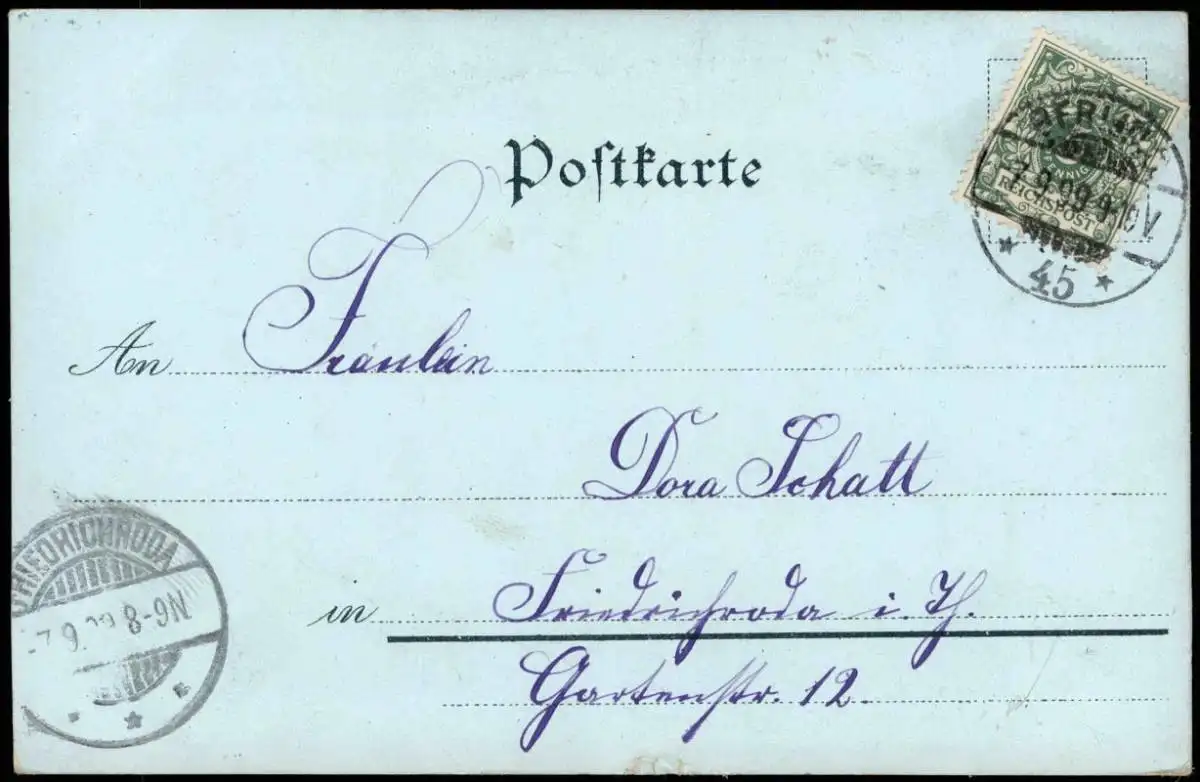 Postkarte
BERLIN
7.9.99.9-10V
* 45 *
PFENNIG
REICHSPOST
An Fräulein
Dora Schatt
in Friedrichroda i. Th.
Gartenstr. 12
FRIEDRICHRODA
8-9N